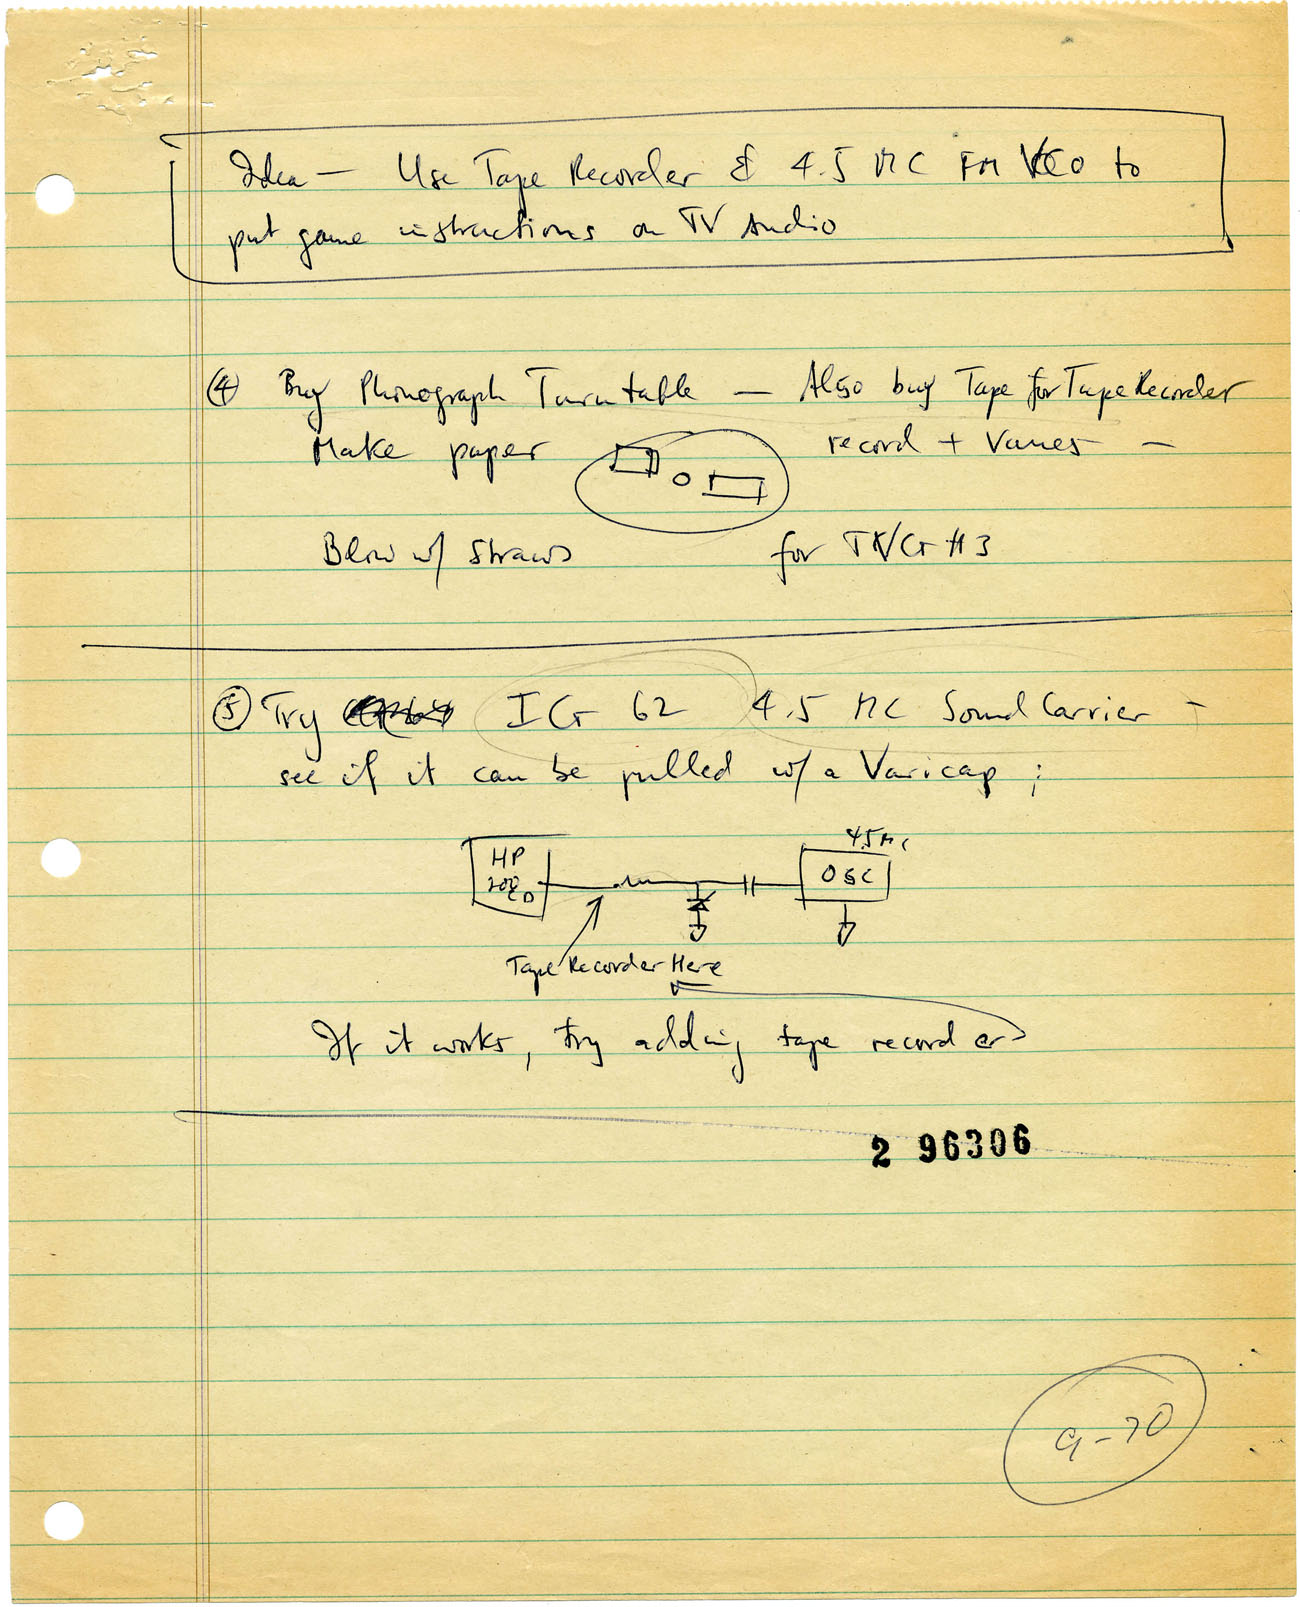 Idea — Use Tape Recorder & 4.5 MC FM VCO to
put game instructions on TV Audio
④ Buy Phonograph Turntable — Also buy Tape for Tape Recorder
Make paper record + Vanes —
Blow w/ Straws for TVG #3
⑤ Try IG 62 4.5 MC Sound Carrier +
see if it can be pulled w/ a Varicap ;
4.5 MC
HP
200
CD
OSC
Tape Recorder Here
If it works, try adding tape recorder
2 96306
9-70